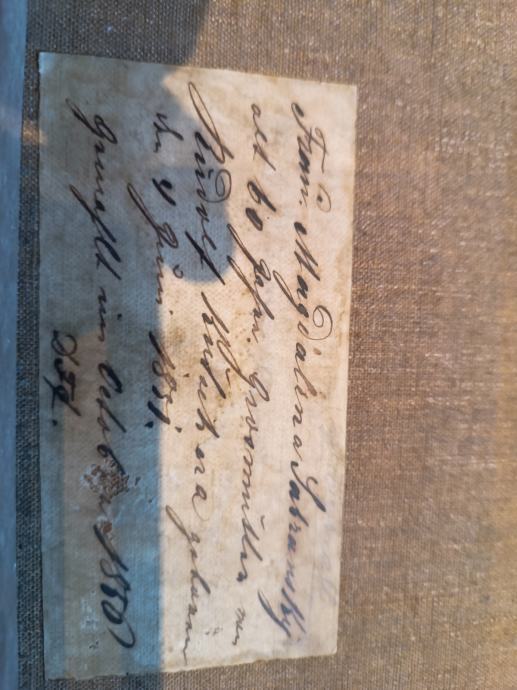 Frau Magdalena Satransky
alt 60 Jahre. Großmutter von
Rudolf geboren
den 4 Juni 1831.
Gemahlt im Oktober 1850